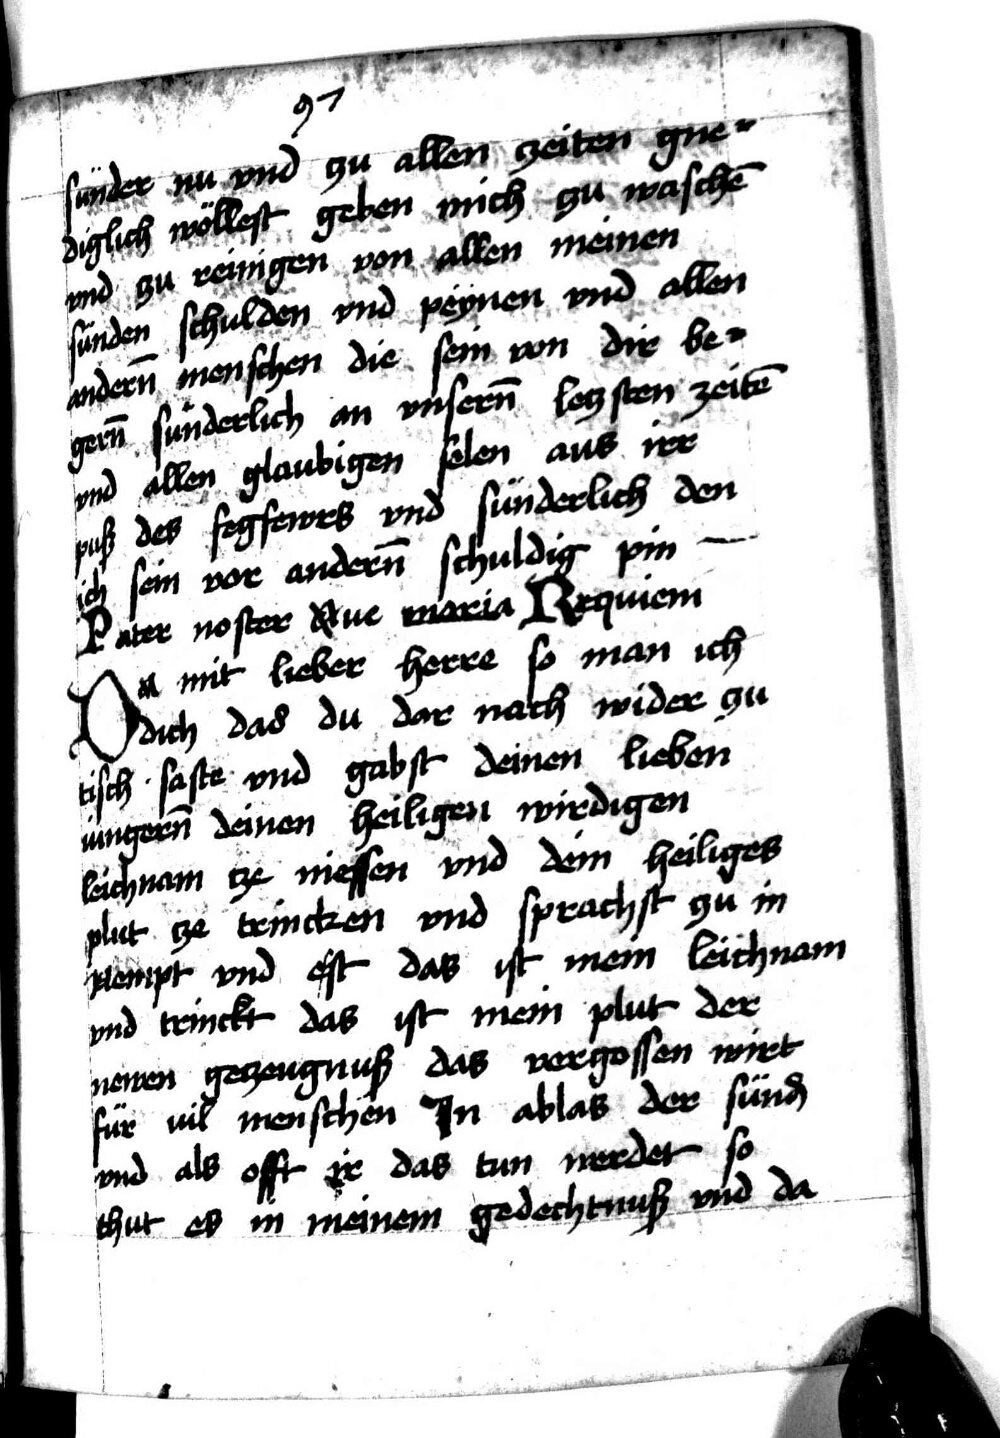 97
sünder nu vnd zu allen zeiten gne=
diglich wöllest geben mich zu waschē
vnd zu reinigen von allen meinen
sünden schulden vnd peÿnen vnd allen
andern̄ menschen die sein von dir be=
gern̄ sünderlich an vnsern̄ letzsten zeitē
vnd allen glaubigen selen aus irr
puß des fegfewrs vnd sünderlich den
ich sein vor andern̄ schuldig pin
Pater noster Aue maria Requiem
Da mit lieber herre so man ich
dich das du dar nach wider zu
tisch saste vnd gabst deinen lieben
iungern̄ deinen heiligen wirdigen
leichnam tze niessen vnd dein heiliges
plut tze trincken vnd sprachst zu in
Nempt vnd est das ist mein leichnam
vnd trinckt das ist mein plut der
newen getzeugnuß das vergossen wirt
für vil menschen In ablas der sünd
vnd als offt ir das tun werdet so
thut es in meinem gedechtnuß vnd da